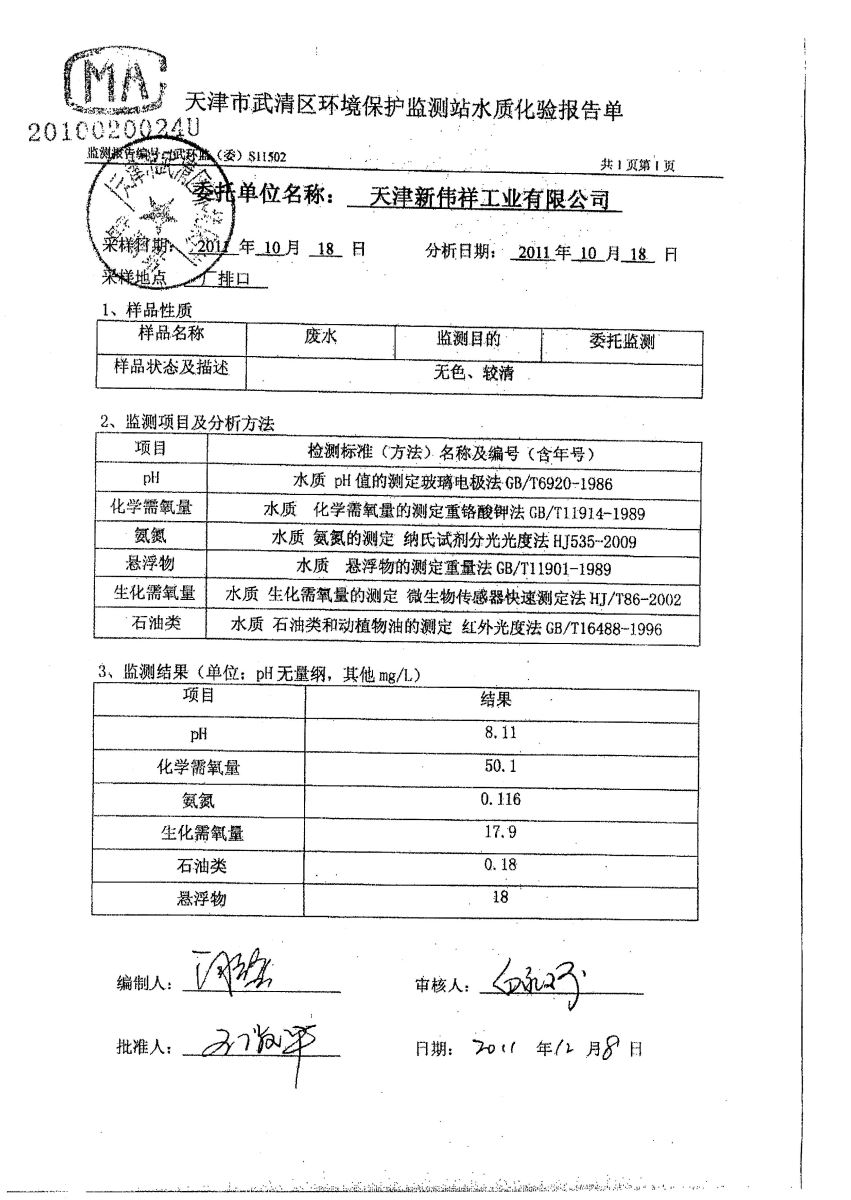 MA
天津市武清区环境保护监测站水质化验报告单
2010020024U
监测报告编号：武环监（委）S11502
共1页第1页
委托单位名称： 天津新伟祥工业有限公司
采样日期： 2011 年 10 月 18 日 分析日期： 2011 年 10 月 18 日
采样地点 厂排口
1、样品性质
样品名称 废水 监测目的 委托监测
样品状态及描述 无色、较清
2、监测项目及分析方法
项目 检测标准（方法）名称及编号（含年号）
pH 水质 pH值的测定玻璃电极法GB/T6920-1986
化学需氧量 水质 化学需氧量的测定重铬酸钾法GB/T11914-1989
氨氮 水质 氨氮的测定 纳氏试剂分光光度法HJ535-2009
悬浮物 水质 悬浮物的测定重量法GB/T11901-1989
生化需氧量 水质 生化需氧量的测定 微生物传感器快速测定法HJ/T86-2002
石油类 水质 石油类和动植物油的测定 红外光度法GB/T16488-1996
3、监测结果（单位：pH无量纲，其他mg/L）
项目 结果
pH 8.11
化学需氧量 50.1
氨氮 0.116
生化需氧量 17.9
石油类 0.18
悬浮物 18
编制人： 审核人：
批准人： 日期： 2011 年 12 月 8 日